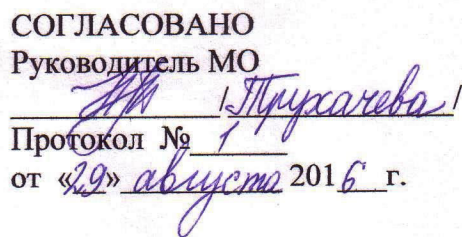 СОГЛАСОВАНО
Руководитель МО
/Трухачева/
Протокол № 1
от «29» августа 2016 г.